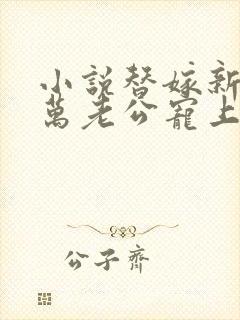 小説替嫁新
萬老公寵上
公子齊